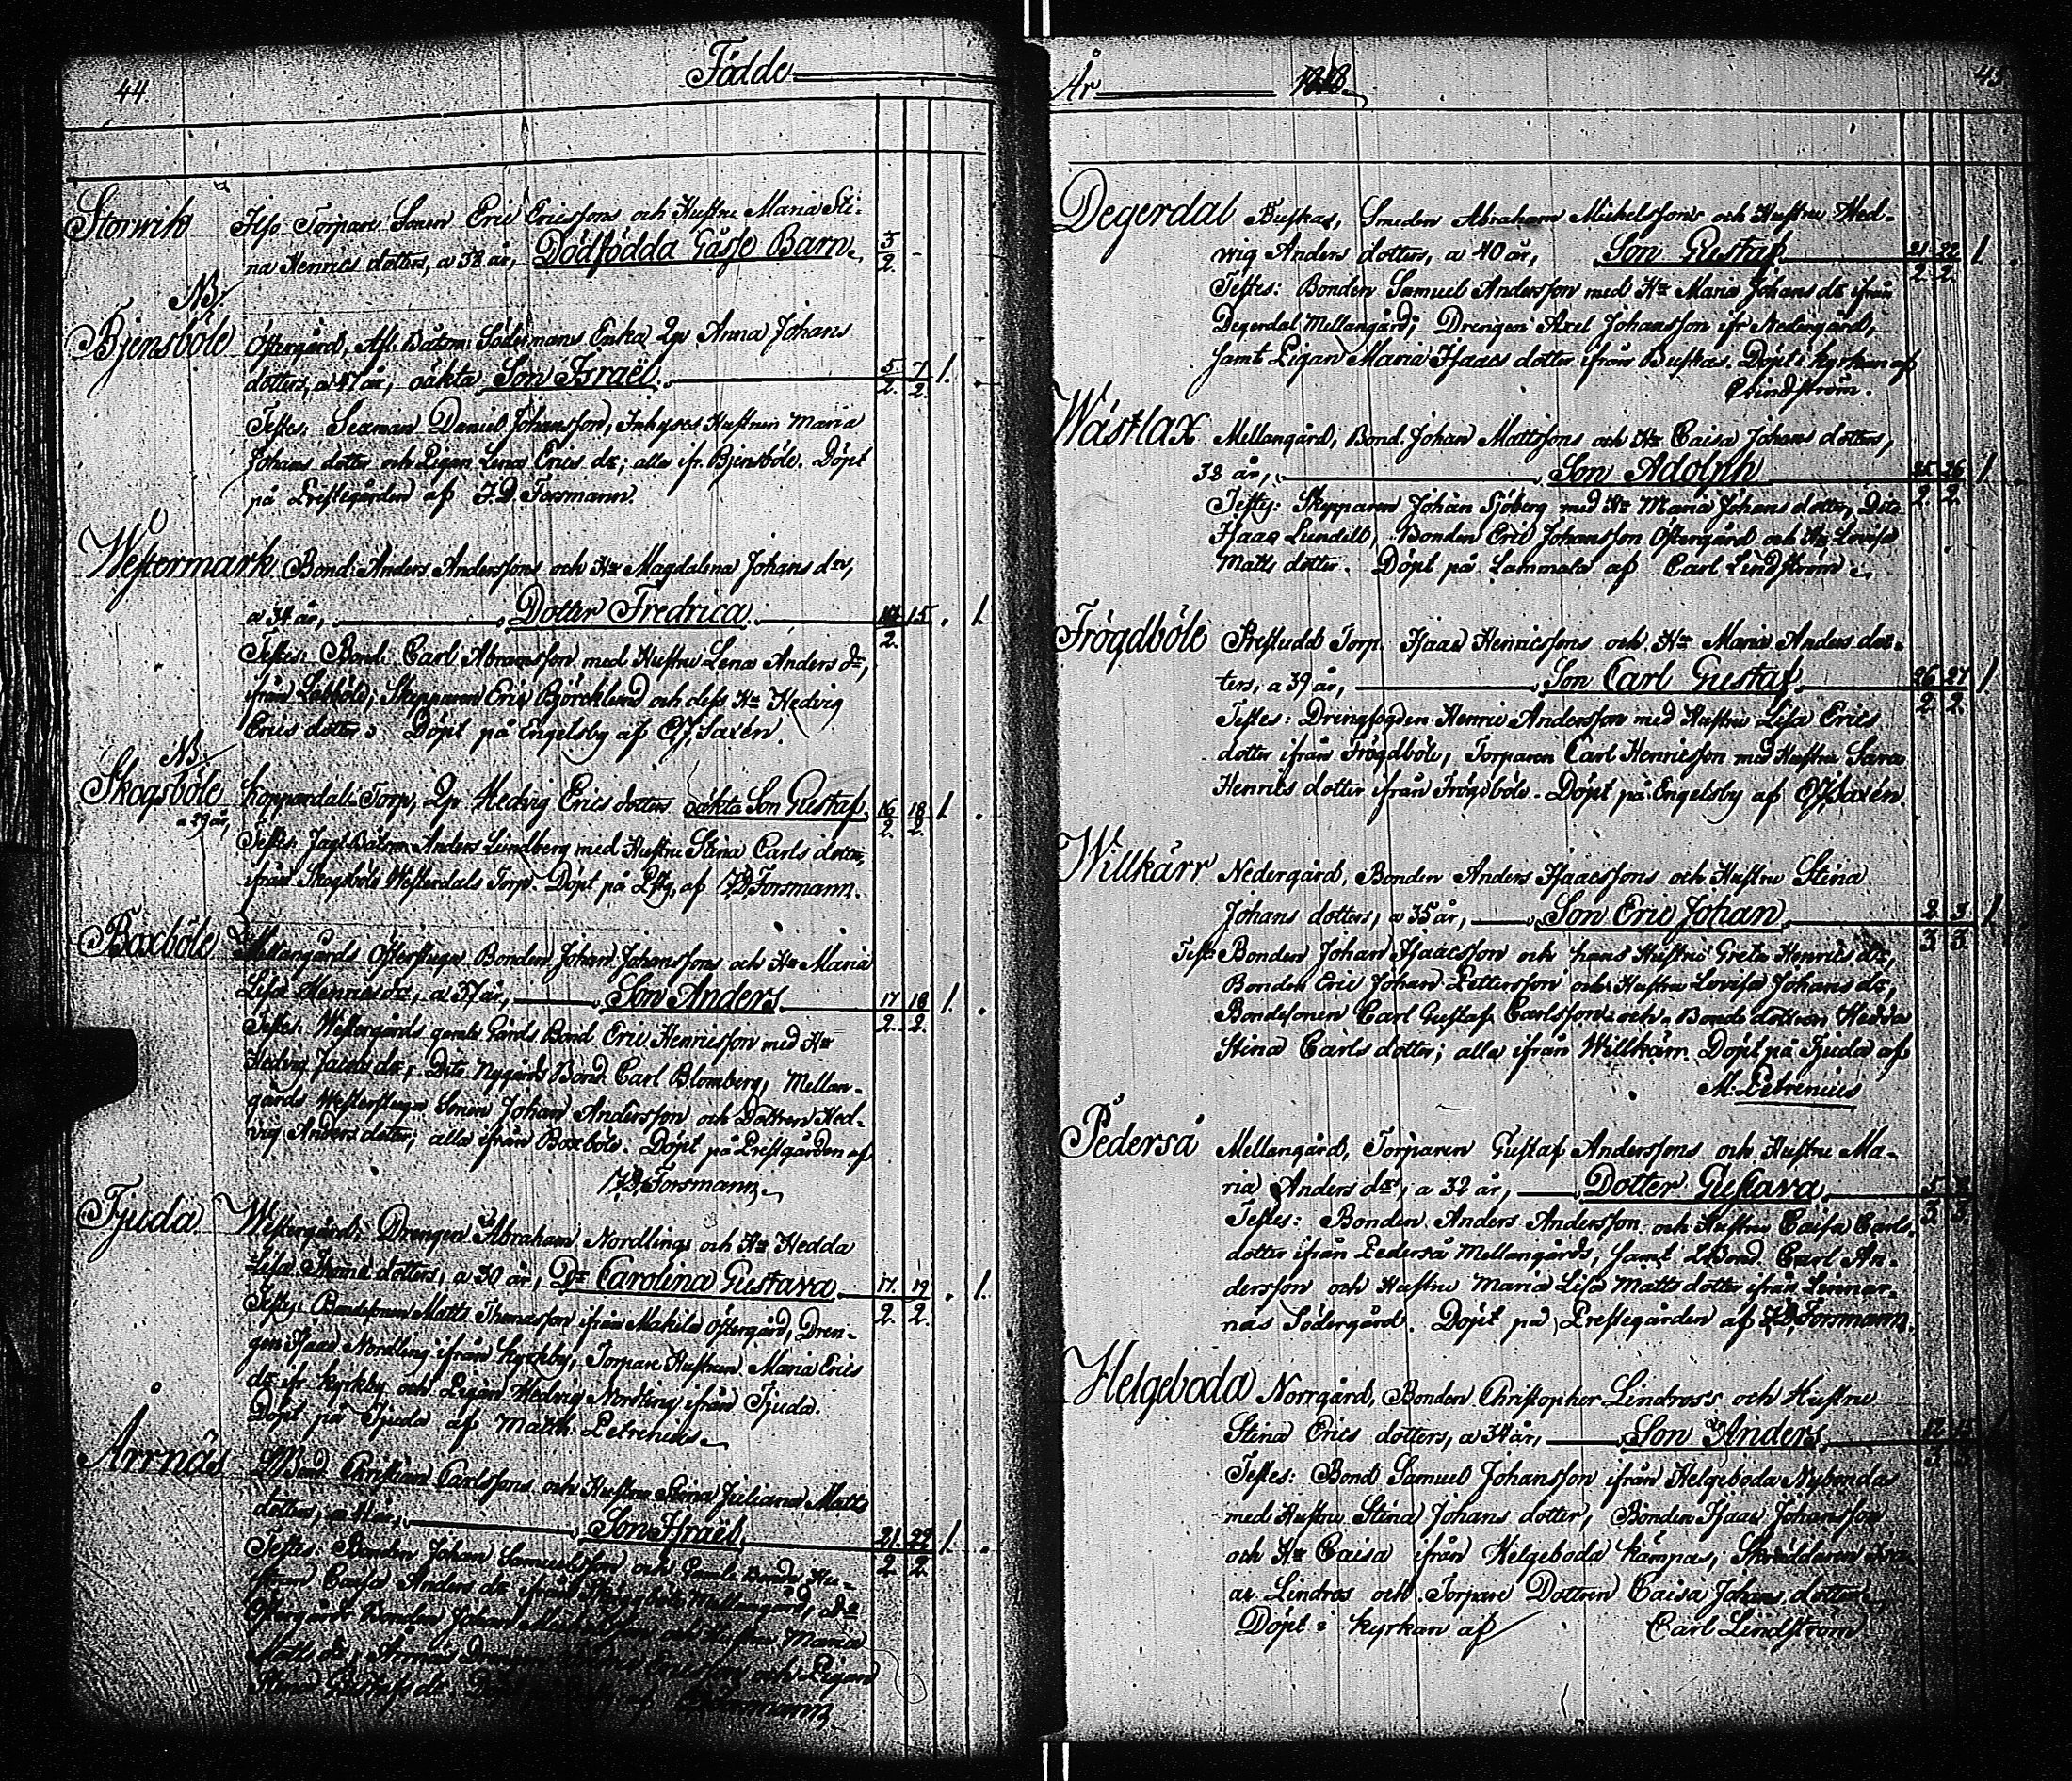 44.
Födde
Storwik Torpare Sonen Eric Ericssons och Hustru Maria Sti-
na Henrics dotters, a 38 år, Dödfödda Gåsse Barn 3/2.
NB
Bjensböle Östergård, Afl. Båtsm. Södermans Enka Qp Anna Johans
dotters, a 47 år, oäkta Son Israël. 5/2. 7/2. 1.
Testes: Sexman Daniel Johansson, Inhyses Hustrun Maria
Johans dotter och Pigan Lena Erics dr; alla ifr. Bjensböle. Döpt
på Prestegården af F.D. Forsmann.
Westermark Bond. Anders Anderssons och Hu Magdalena Johans drs,
a 34 år, Dotter Fredrica. 14/2. 15. 1.
Testes: Bond. Carl Abramsson med Hustru Lena Anders dr,
ifrån Lökböle; Skepparen Eric Björcklund och dess Hu Hedvig
Erics dotter. Döpt på Engelsby af CJ Saxén.
NB
Skogsböle Koppardals Torp, Qp Hedvig Erics dotters oäkta Son Gustaf 16/2. 18/2. 1.
a 29 år,
Testes: Jagt Båtsm Anders Lundberg med Hustru Stina Carls dotter,
ifrån Skogsböle Westerdals Torp. Döpt på Pstg. af F.D. Forsmann.
Boxböle Mellangårds Österstuga Bonden Johan Johanssons och Hu Maria
Lisa Henrics drs, a 37 år, Son Anders 17/2. 18/2. 1.
Testes: Westergårds gamla Gårds Bond Eric Henricsson med Hu
Hedvig Jacobs dr; Dito Nygårds Bond. Carl Blomberg; Mellan-
gårds Westerstuga Sonen Johan Andersson och Dottren Hed-
vig Anders dotter; alla ifrån Boxböle. Döpt på Prestgården af
F.D. Forsmann.
Tjuda Westergård; Drengen Abraham Nordlings och Hu Hedda
Lisa Thomæ dotters, a 30 år, Dr Carolina Gustava. 17/2. 19/2. 1.
Testes: Bondesonen Matts Thomasson ifrån Makila Östergård, Dren-
gen Isaac Nordling ifrån Kyrkby, Torpare Hustrun Maria Erics
dr ifr Kyrkby och Pigan Hedvig Nordling ifrån Tjuda.
Döpt på Tjuda af Matth. Petrenius.
Årrnäs Bond Christian Carlssons och Hustru Stina Juliana Matts
dotters, a 41 år, Son Israël 21/2. 22/2. 1.
Testes: Bonden Johan Samuelsson och Gamle Bonde Hu-
strun Caisa Anders dr ifrån Mellangård, Do
Östergårds Bonden Johan Michelsson och Hustru Maria
Matts dr; Årrnäs Drengen Ericsson och Pigan
Gustafs dr. Döpt på af Forsmann.
År 1818.
45
Degerdal Buskas, Smeden Abraham Michelssons och Hustru Hed-
wig Anders dotters, a 40 år, Son Gustaf 21/2. 22/2. 1.
Testes: Bonden Samuel Andersson med Hu Maria Johans dr ifrån
Degerdal Mellangård; Drengen Axel Johansson ifr Nedergård,
samt Pigan Maria Isaacs dotter ifrån Buskas. Döpt i kyrkan af
C Lindström.
Wästlax Mellangård, Bond. Johan Mattssons och Hu Caisa Johans dotters,
32 år, Son Adolph 25/2. 26/2. 1.
Testes: Skepparen Johan Sjöberg med Hu Maria Johans dotter, Dito
Isaac Lundell, Bonden Eric Johansson Östergård och Hu Lovisa
Matts dotter. Döpt på Lammala af Carl Lindström.
Frögdböle Prestudd Torp. Isaac Henricssons och Hu Maria Anders dot-
ters, a 39 år, Son Carl Gustaf 26/2. 27/2. 1
Testes: Drengfogden Henric Andersson med Hustru Lisa Erics
dotter ifrån Frögdböle, Torparen Carl Henricsson med Hustru Sara
Henrics dotter ifrån Frögdböle. Döpt på Engelsby af CJ Saxén
Willkärr Nedergård, Bonden Anders Isaacssons och Hustru Stina
Johans dotters, a 35 år, Son Eric Johan 2/3. 3/3. 1
Test: Bonden Johan Isaacsson och hans Hustru Greta Henrics dr,
Bonden Eric Johan Pettersson och Hustru Lovisa Johans dr,
Bondesonen Carl Gustaf Carlsson och Bonde dottren Hedda
Stina Carls dotter; alla ifrån Willkärr. Döpt på Tjuda af
M. Petrenius
Pederså Mellangård, Torparen Gustaf Anderssons och Hustru Ma-
ria Anders drs, a 32 år, Dotter Gustava 5/3.
Testes: Bonden Anders Andersson och Hustru Caisa Carls
dotter ifrån Pederså Mellangårds, samt Bond. Carl An-
dersson och Hustru Maria Lisa Matts dotter ifrån Linnar-
näs Södergård. Döpt på Prestegården af F.D. Forsmann.
Helgeboda Norrgård, Bonden Christopher Lindross och Hustru
Stina Erics dotters, a 34 år, Son Anders 12/3.
Testes: Bond Samuel Johansson ifrån Helgeboda Nybonda
med Hustru Stina Johans dotter, Bonden Isaac Johansson
och Hu Caisa ifrån Helgeboda Kämpas, Skräddaren Isa-
ac Lindros och Torpare Dottren Caisa Johans dotter.
Döpt i kyrkan af Carl Lindström